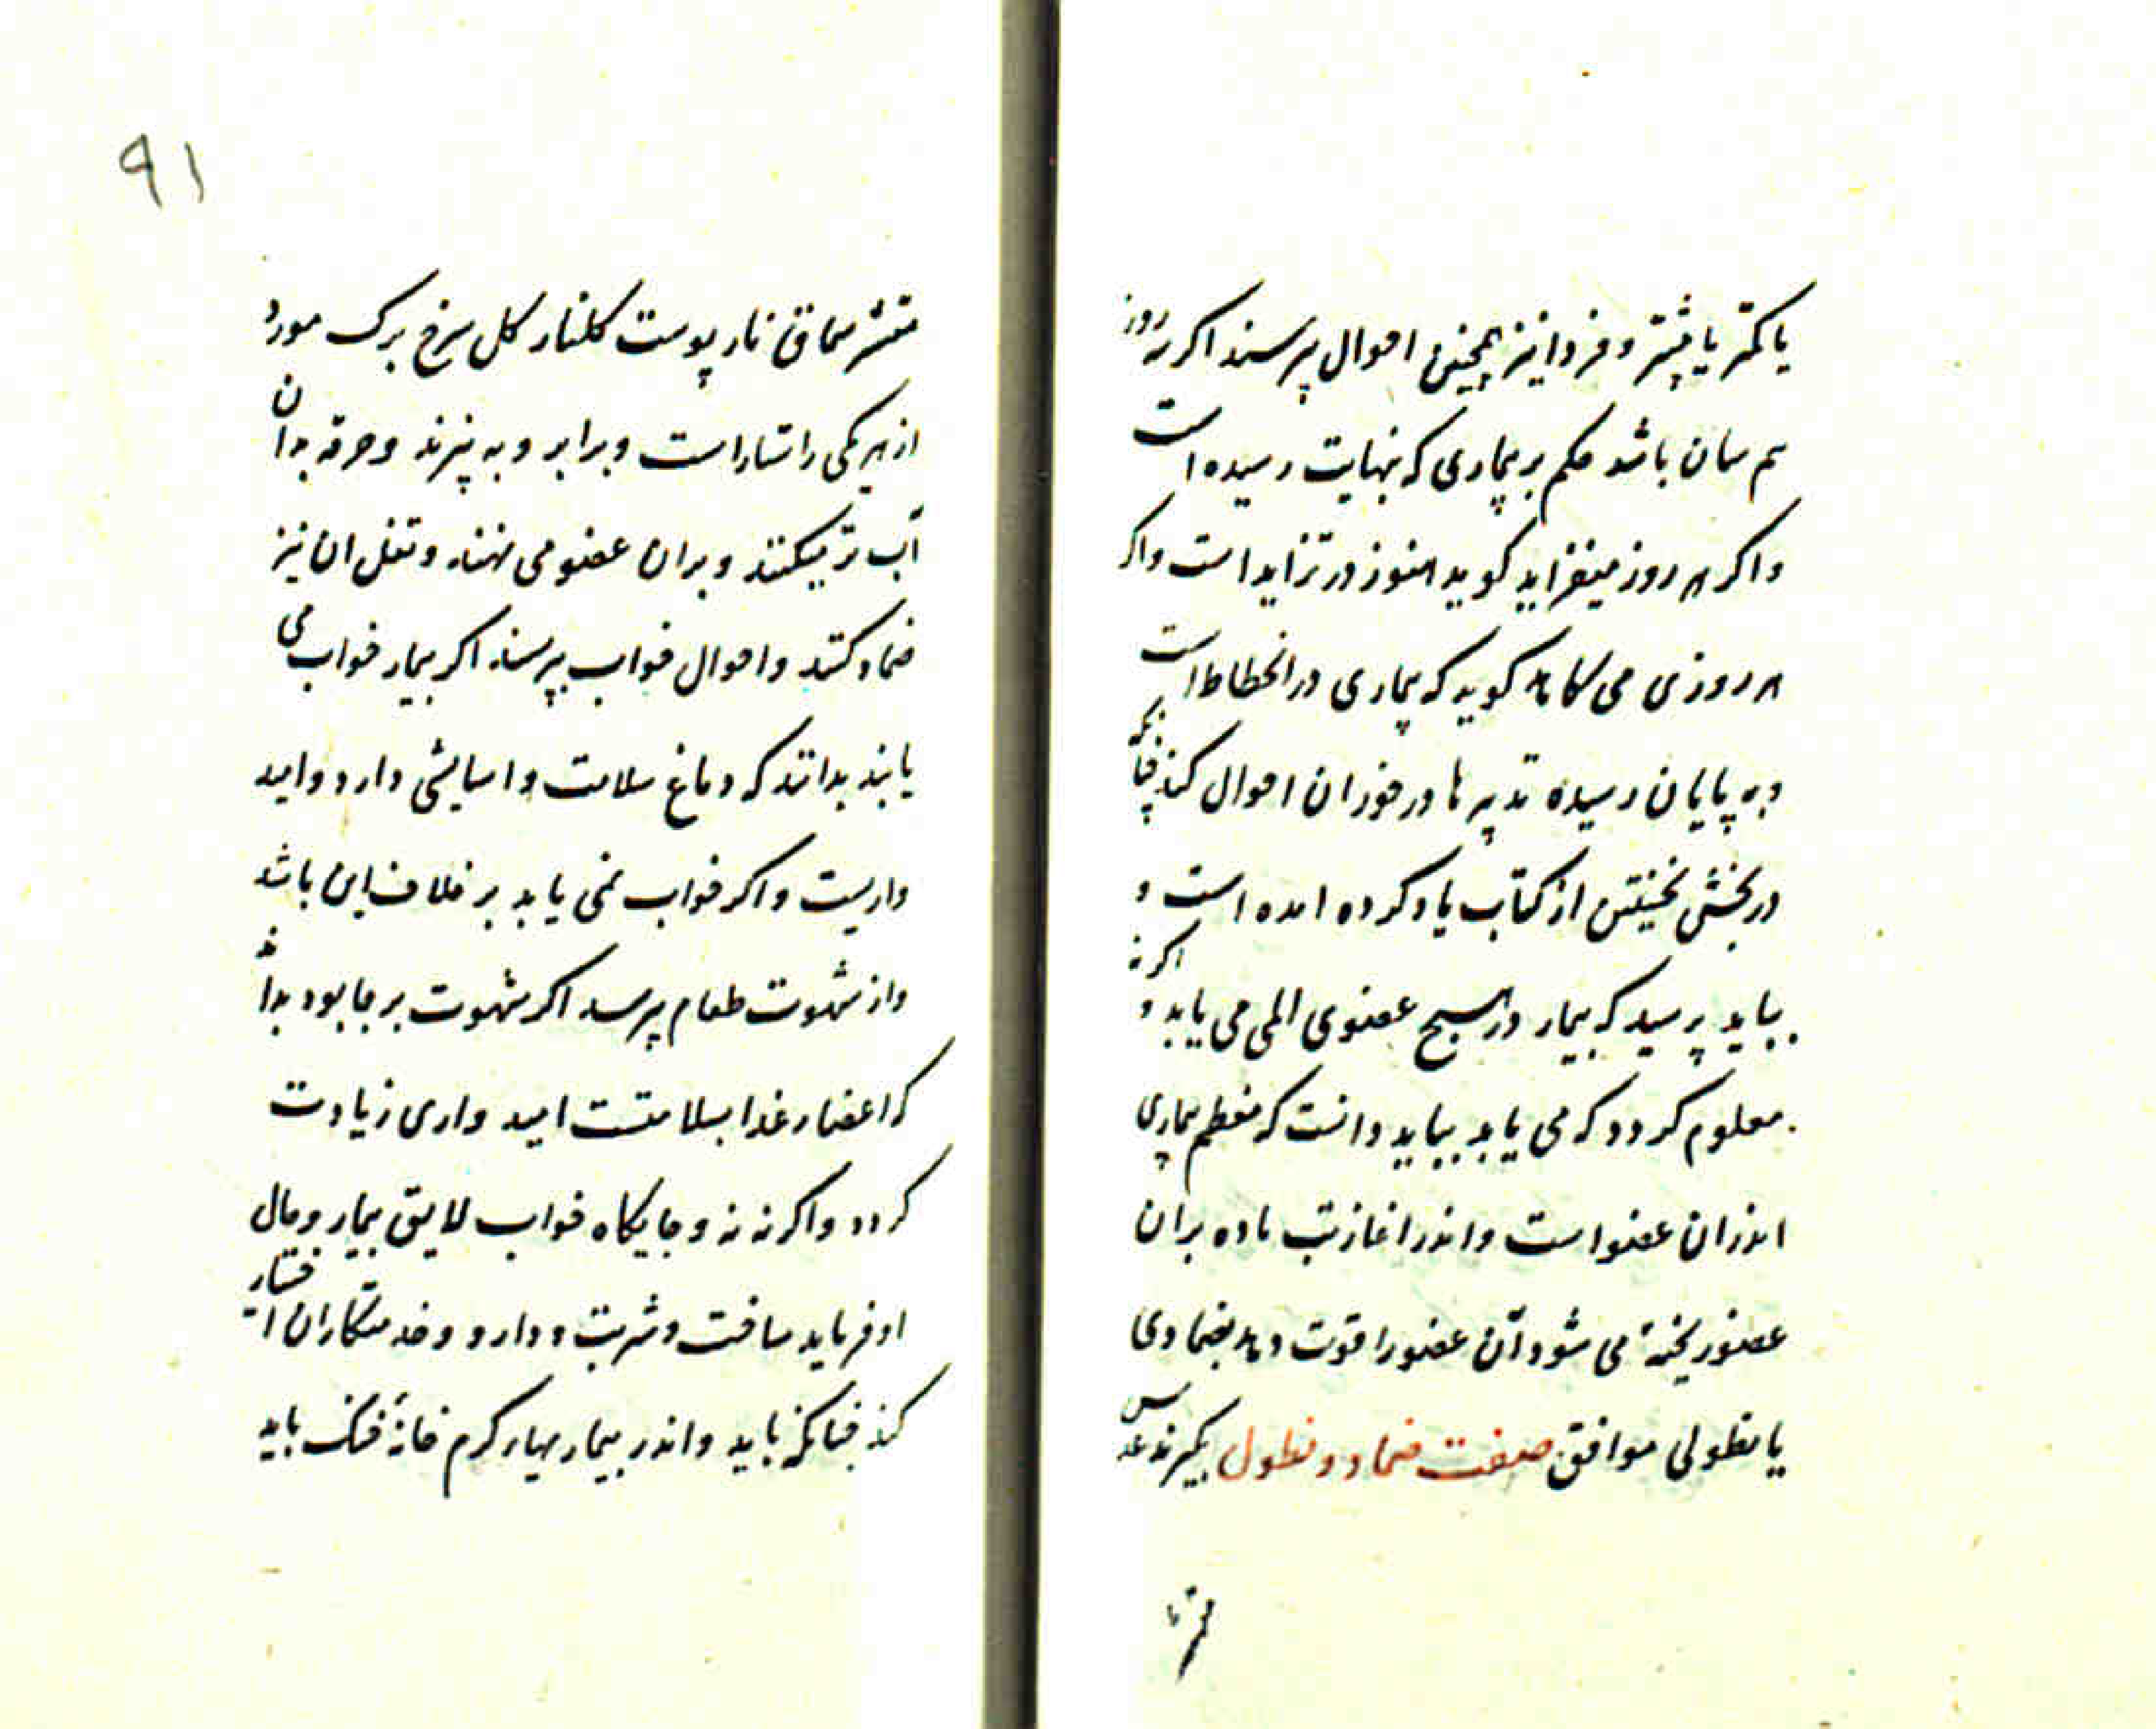 یا کمتر یا بیشتر و فردا نیز همچنین احوال پرسند اکر سه روز
هم سان باشد حکم بر بیماری که بنهایت رسیده است
و اکر هر روز میفزاید کوید هنوز در تزاید است و اکر
هر روزی می کاهد کوید که بیماری در انحطاط است
و به پایان رسیده تدبیرها در خور ان احوال کند چنانکه
در بخش نخستین از کتاب یاد کرده امده است و
بباید پرسید که بیمار در هیچ عضوی المی می یابد و اکر نه
معلوم کردد که می یابد بباید دانست که معظم بیماری
اندران عضو است و اندر اغاز تب ماده بران
عضو ریخته می شود آن عضو را قوت دهد بضمادی
یا نطولی موافق صفت ضماد و نطول بکیرند عدس
مقشر
۹۱
مقشر سماق نار پوست کلنار کل سرخ برک مورد
از هر یکی راستاراست و برابر و به پزند و خرقه بدان
آب تر میکنند و بران عضو می نهند و ثفل ان نیز
ضماد کنند و احوال خواب بپرسند اکر بیمار خواب می
یابند بدانند که دماغ سلامت و اسایشی دارد و امید
واریست و اکر خواب نمی یابد بر خلاف این باشد
و از شهوت طعام پرسد اکر شهوت بر جا بود بداند
که اعضار غذا بسلامتست امید واری زیادت
کردد و اکر نه نه و جایکاه خواب لایق بیمار و حال
او فرماید ساخت و شربت و دارو و خدمتکاران اختیار
کند چنانکه باید و اندر بیمار بهار کرم خانهٔ خنک باید